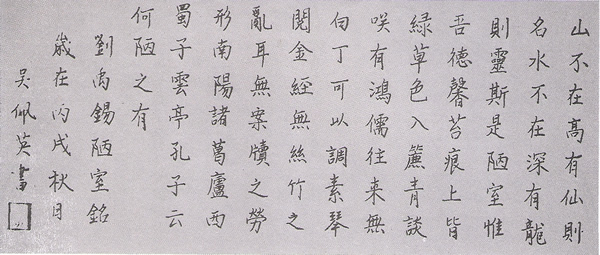 山不在高有仙則
名水不在深有龍
則靈斯是陋室惟
吾德馨苔痕上皆
綠草色入簾青談
咲有鴻儒往来無
白丁可以調素琴
閱金經無絲竹之
亂耳無案牘之勞
形南陽諸葛廬西
蜀子雲亭孔子云
何陋之有
劉禹錫陋室銘
歲在丙戌秋月
吳佩英書